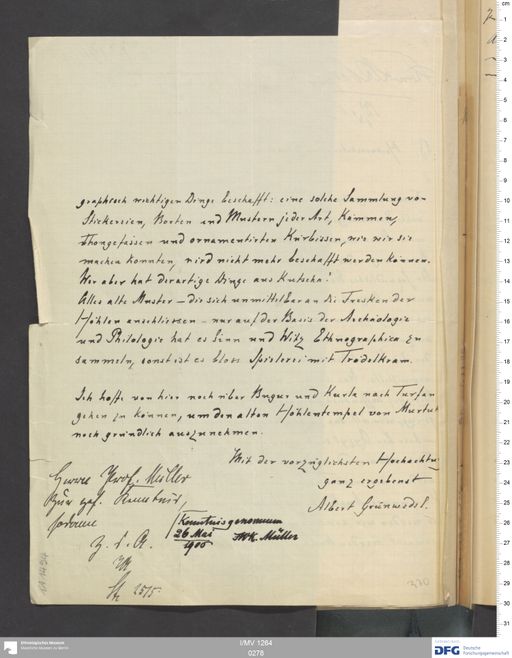 graphisch wichtigen Dinge beschafft: eine solche Sammlung von
Stickereien, Borten und Mustern jeder Art, Kämmen,
Thongefässen und ornamentirten Kürbissen, wie wir sie
machen konnten, wird nicht mehr beschafft werden können.
Wer aber hat derartige Dinge aus Kutscha!
Alles alte Muster – die sich unmittelbar an die Fresken der
Höhlen anschliessen – nur auf der Basis der Archäologie
und Philologie hat es Sinn und Witz Ethnographica zu
sammeln, sonst ist es bloss Spielerei mit Trödelkram.
Ich hoffe von hier noch über Bugur und Kurla nach Turfan
gehen zu können, um den alten Höhlentempel von Murtuk
noch gründlich auszunehmen.
Mit der vorzüglichsten Hochachtu
ganz ergebenst
Albert Grünwedel.
Herrn Prof. Müller
zur gef. Kenntnis,
sodann
z. d. A.
25/5.
Kenntnis genommen
26 Mai
1906
FWK Müller
I/MV 1264
0278
Ethnologisches Museum
Staatliche Museen zu Berlin
DFG
Deutsche
Forschungsgemeinschaft